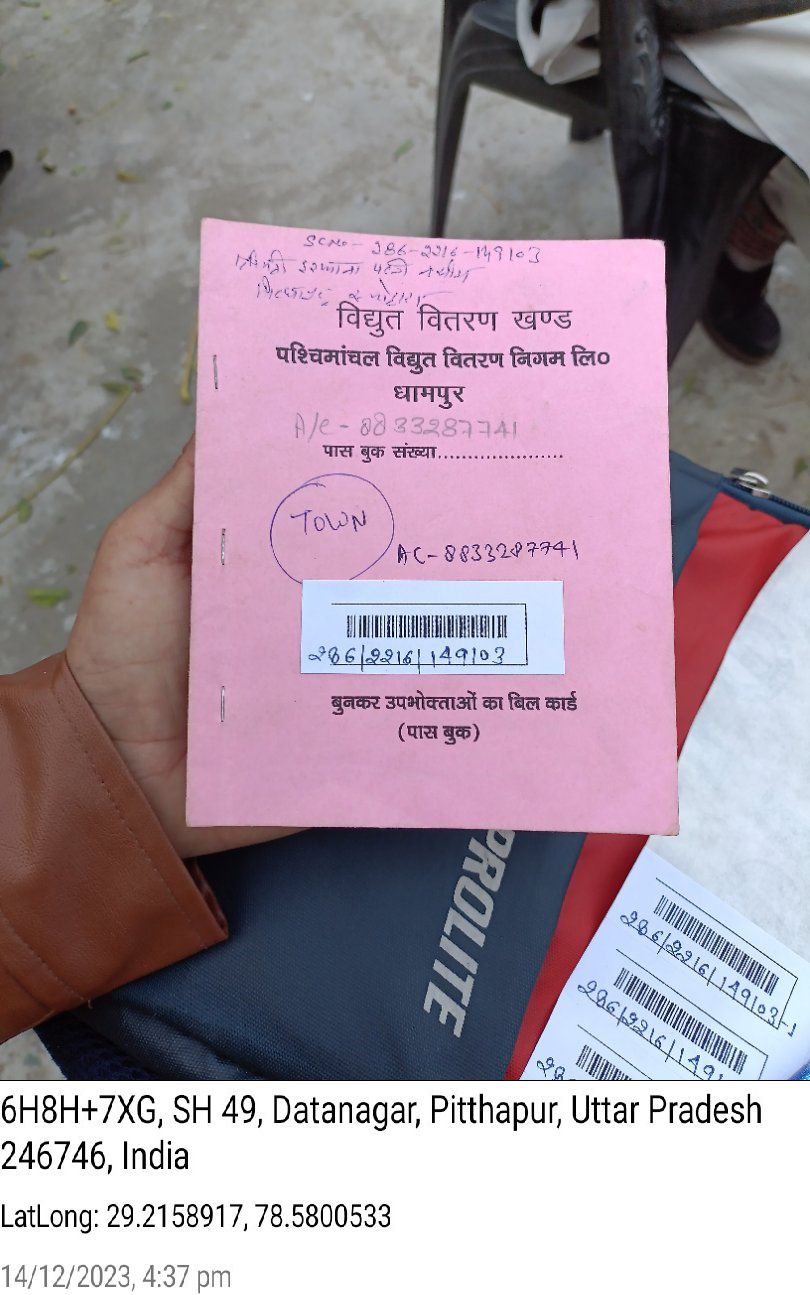 SCNo- 286-2216-149103
श्रीमती इरफाना पत्नी
विद्युत वितरण खण्ड
पश्चिमांचल विद्युत वितरण निगम लि०
धामपुर
A/c - 8833287741
पास बुक संख्या.....................
TOWN
AC- 8833287741
286/2216/149103
बुनकर उपभोक्ताओं का बिल कार्ड
(पास बुक)
PROLITE
286/2216/149103-1
286/2216/1491
6H8H+7XG, SH 49, Datanagar, Pitthapur, Uttar Pradesh
246746, India
LatLong: 29.2158917, 78.5800533
14/12/2023, 4:37 pm